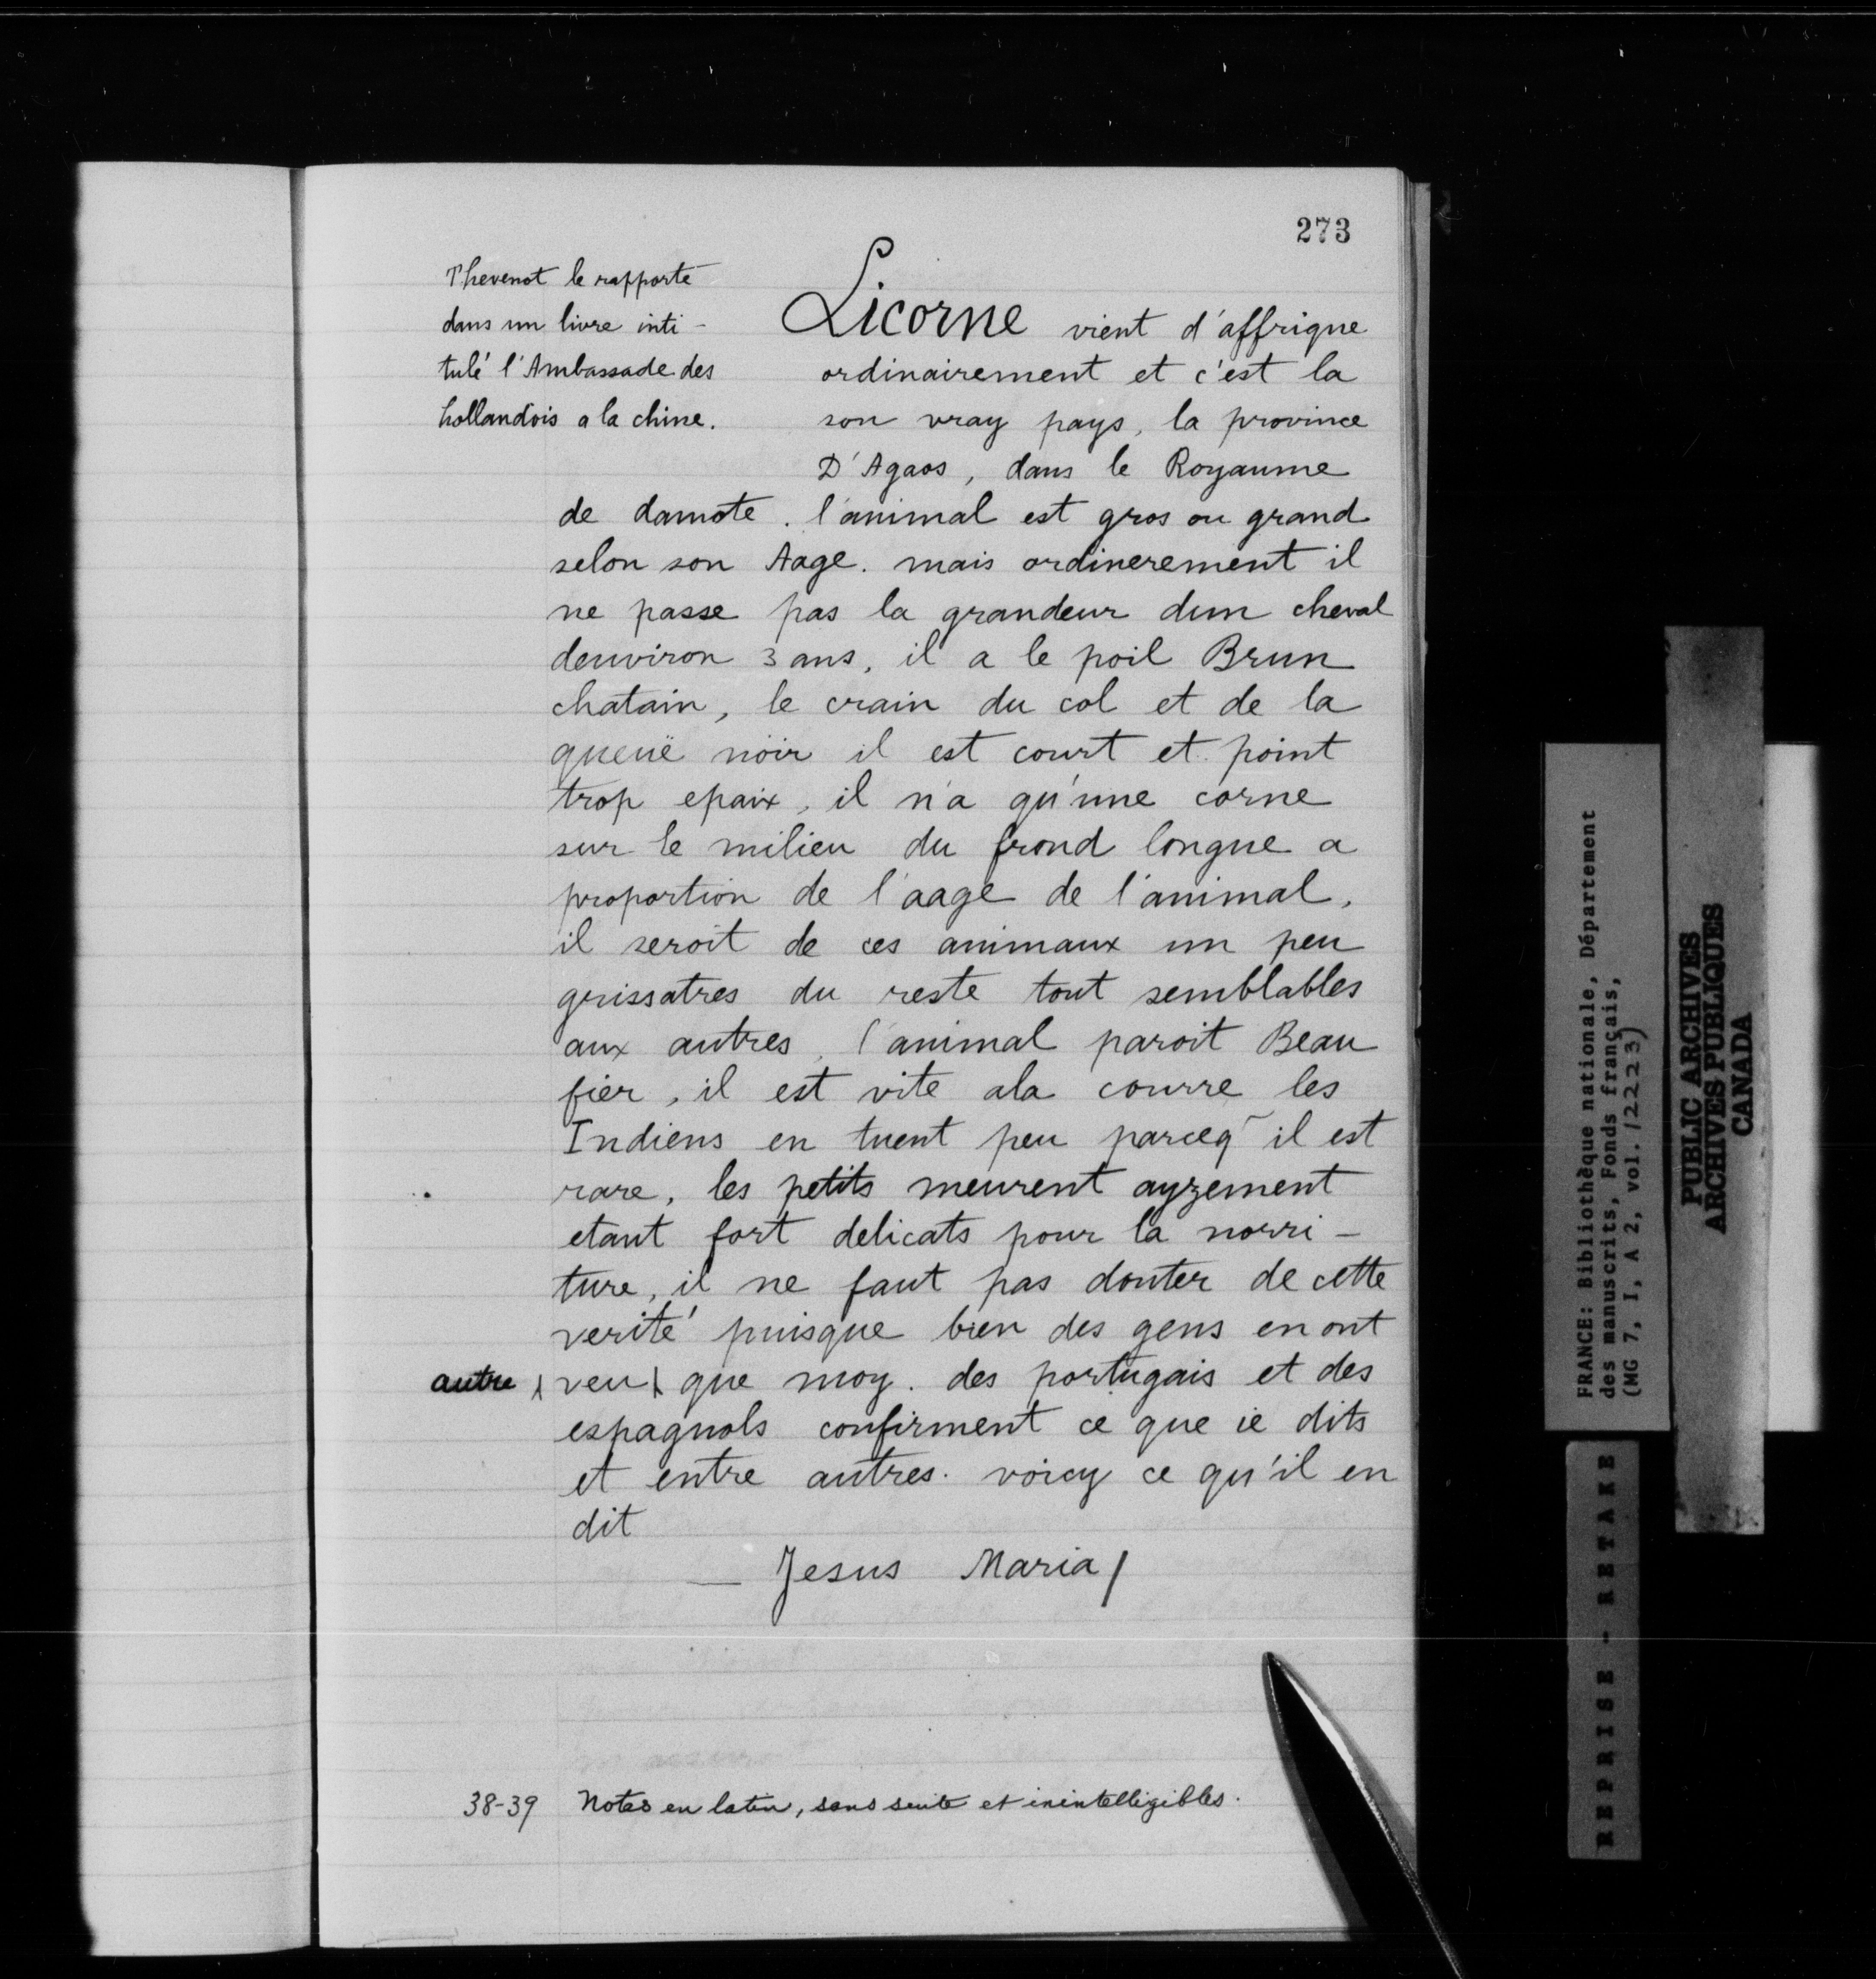 273
Thevenot le rapporte
dans un livre inti-
tulé l'Ambassade des
hollandois a la chine.
Licorne vient d'affrique
ordinairement et c'est la
son vray pays, la province
D'Agaos, dans le Royaume
de damote. l'animal est gros ou grand
selon son Aage. mais ordinerement il
ne passe pas la grandeur dun cheval
denviron 3 ans, il a le poil Brun
chatain, le crain du col et de la
queuë nöir il est court et point
trop epaix, il n'a qu'une corne
sur le milieu du frond longue a
proportion de l'aage de l'animal,
il seroit de ces animaux un peu
grissatres du reste tout semblables
aux autres, l'animal paroit Beau
fier, il est vite ala courre les
Indiens en tuent peu parceq̃ il est
rare, les petits meurent ayzement
etant fort delicats pour la norri-
ture, il ne faut pas douter de cette
verité puisque bien des gens en ont
autre veu que moy. des portugais et des
espagnols confirment ce que ie dits
et entre autres. voicy ce qu'il en
dit
— Jesus Maria /
38-39 Notes en latin, sans suite et inintelligibles.
FRANCE: Bibliothèque nationale, Département
des manuscrits, Fonds français,
(MG 7, I, A 2, vol. 12223)
PUBLIC ARCHIVES
ARCHIVES PUBLIQUES
CANADA
REPRISE - RETAKE